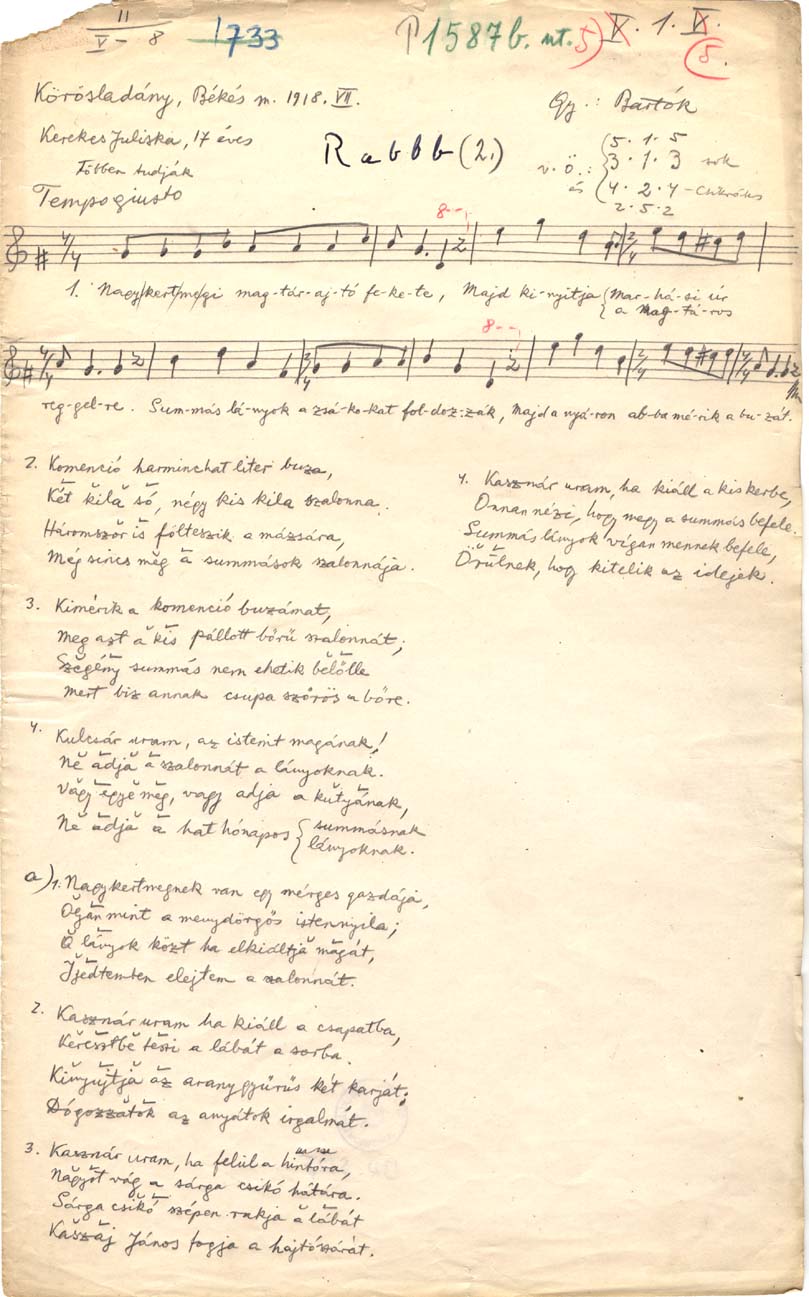 II
V - 8
1733
P1587b. nt. 5)
V. 1. V.
5.
Körösladány, Békés m. 1918. VII.
Gy.: Bartók
Kerekes Juliska, 17 éves
Többen tudják
Rabbb (2.)
v. ö.: 5 . 1 . 5
3 . 1 . 3 sok
és 4 . 2 . 4
2 . 5 . 2
Tempo giusto
8---
1. Nagykertmegi mag-tár-aj-tó fe-ke-te, Majd ki-nyitja { Mar-há-si úr
a Mag-tá-ros
8---
reg-gel-re. Sum-más lá-nyok a zsá-ko-kat fol-doz-zák, Majd a nyá-ron ab-ba mé-rik a bu-zát.
2. Komenció harminchat liter buza,
Két kila só, négy kis kila szalonna.
Háromszor is fölteszik a mázsára,
Még sincs még a summások szalonnája.
3. Kimérik a komenció buzámat,
Meg azt a kis pállott bőrű szalonnát;
Szegény summás nem ehetik belőlle
Mert biz annak csupa szőrös a bőre.
4. Kulcsár uram, az istenit magának!
Ne adja a szalonnát a lányoknak.
Vagy egye meg, vagy adja a kutyának,
Ne adja a hat hónapos { summásnak
lányoknak.
a) 1. Nagykertmegnek van egy mérges gazdája,
Ojan mint a menydörgős istennyila;
A lányok közt ha elkiáltja magát,
Ijedtemben elejtem a szalonnát.
2. Kasznár uram ha kiáll a csapatba,
Keresztbe teszi a lábát a sorba.
Kinyujtja az aranygyűrűs két karját:
Dógozzatok az anyátok irgalmát.
3. Kasznár uram, ha felül a hintóra,
Nagyot vág a sárga csikó hátára.
Sárga csikó szépen rakja a lábát
Kaszaj János fogja a hajtószárát.
4. Kasznár uram, ha kiáll a kis kerbe,
Onnan nézi, hogy megy a summás befele.
Summás lányok vígan mennek befele,
Örülnek, hogy kitelik az idejek.